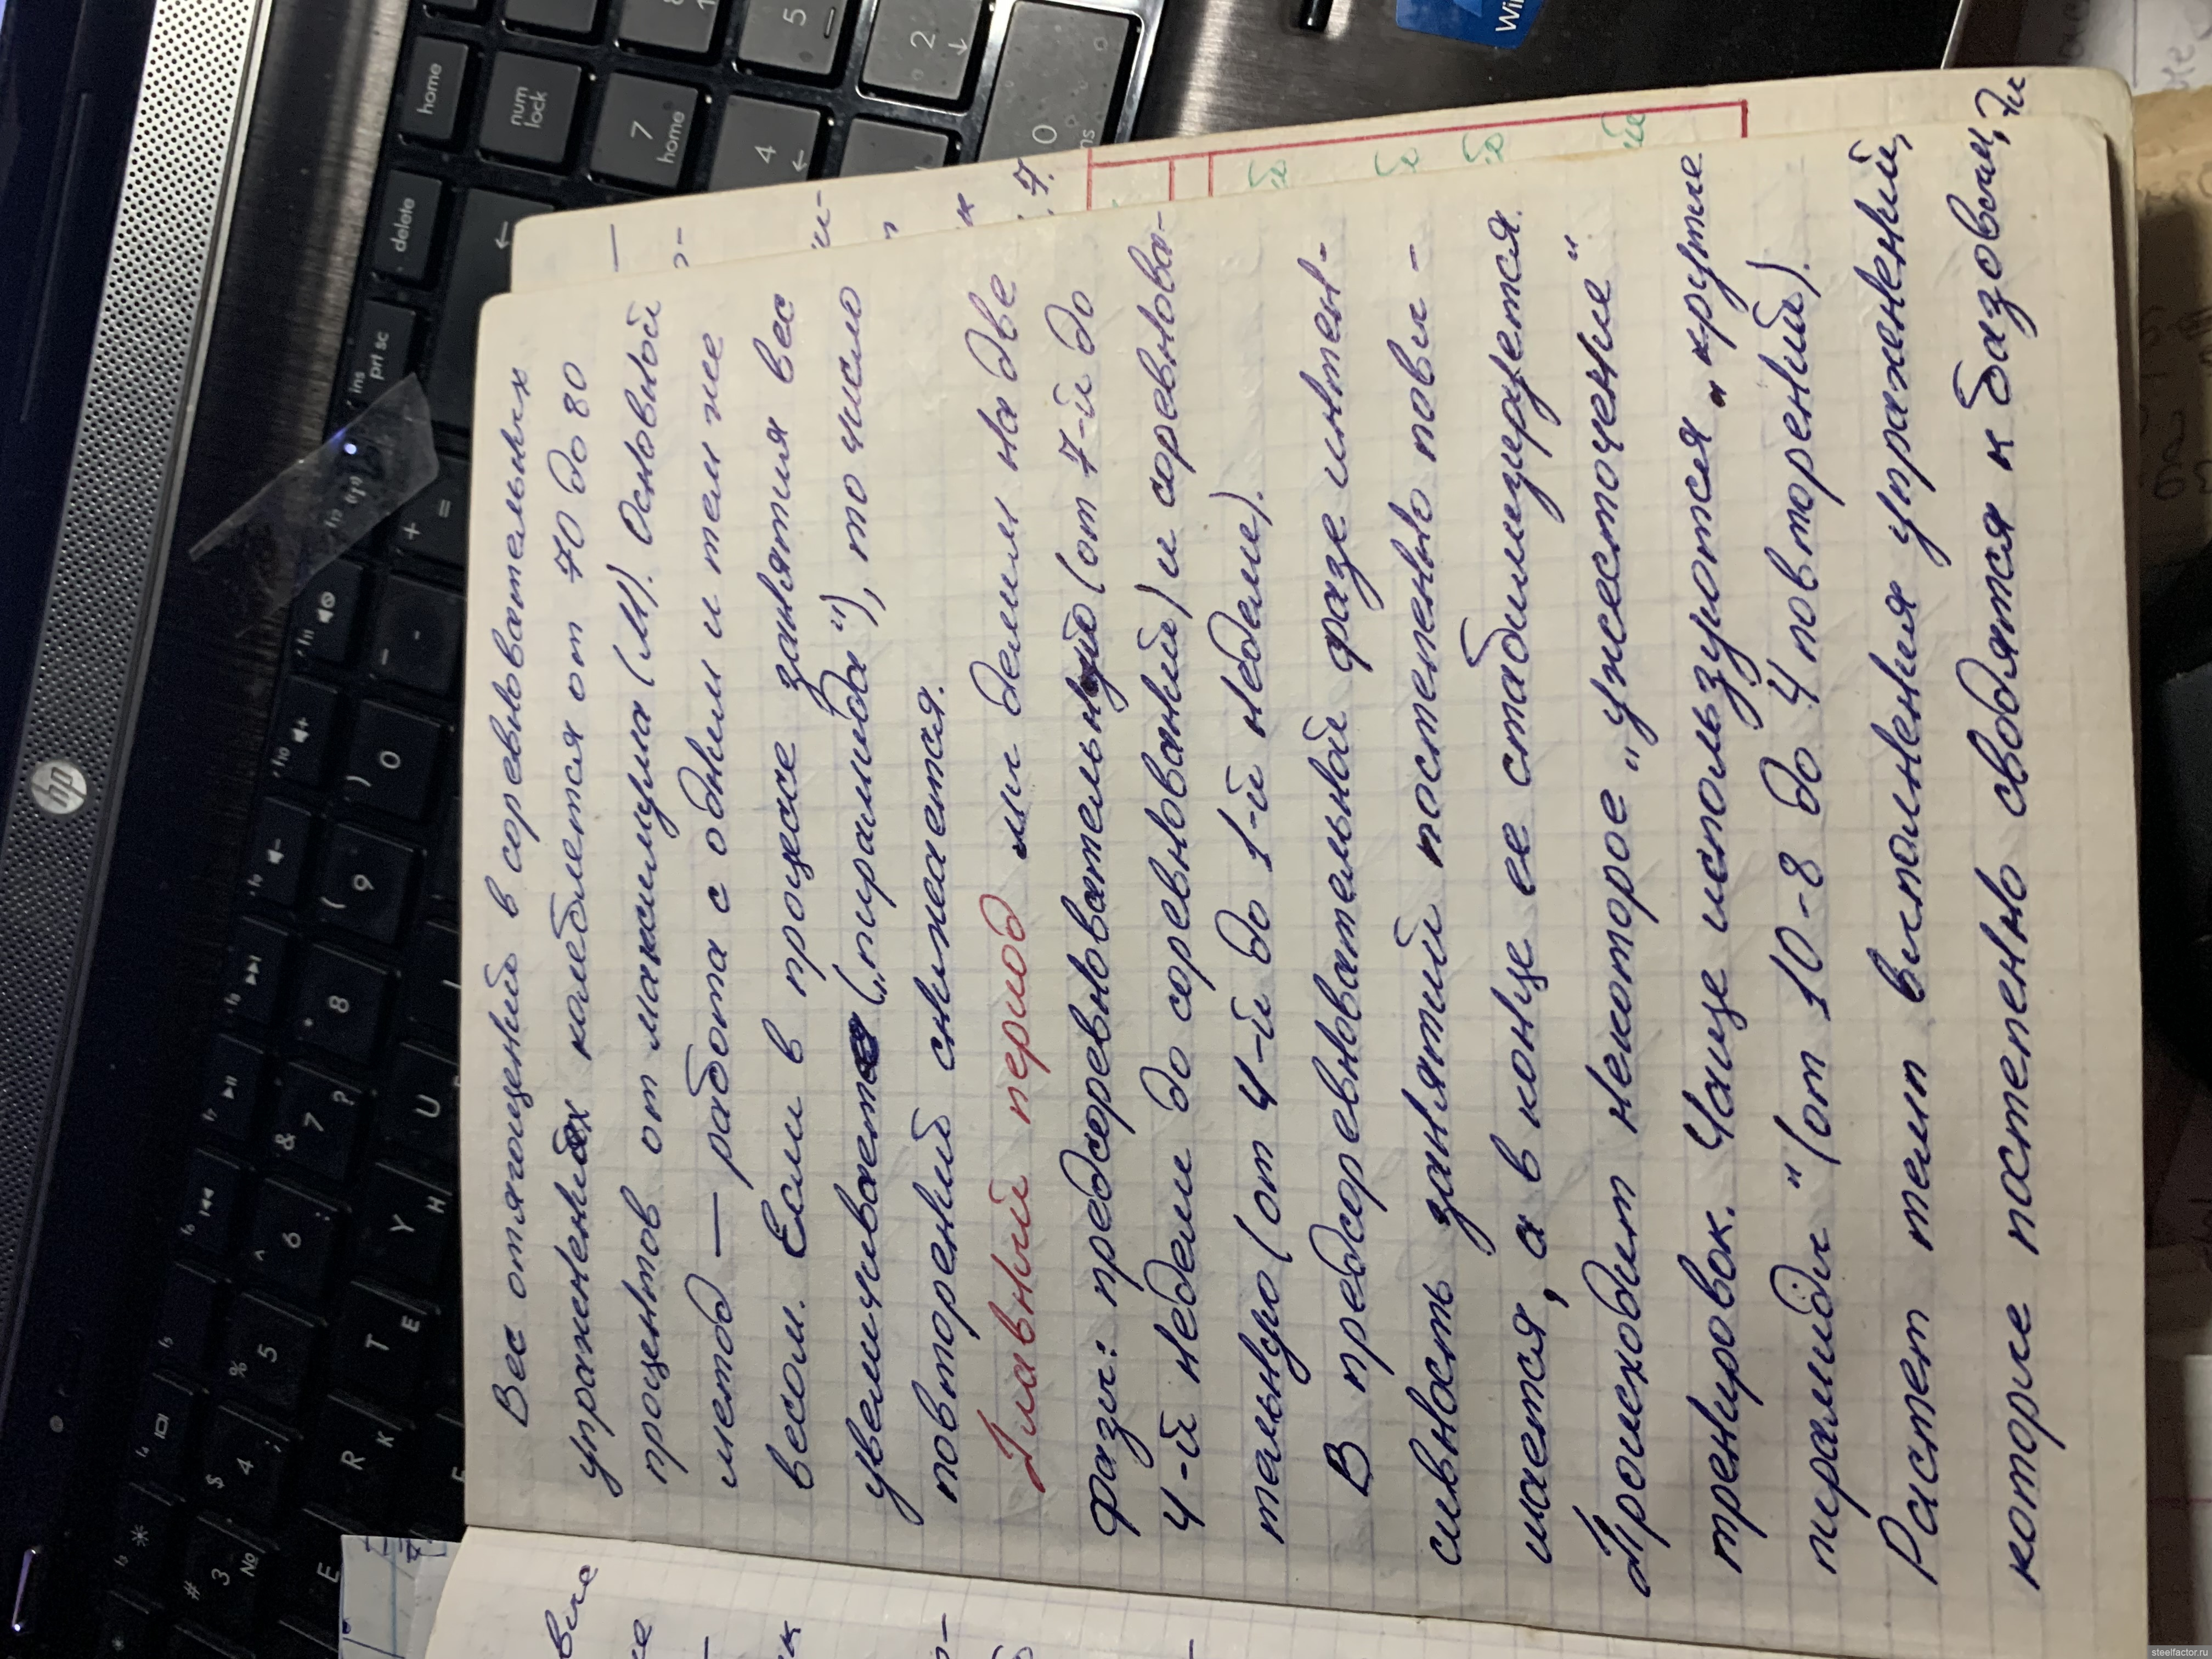 Вес отягощений в соревновательных
упражнениях колеблется от 70 до 80
процентов от максимума (М). Основной
метод — работа с одним и тем же
весом. Если в процессе занятия вес
увеличивается („пирамида“), то число
повторений снижается.
Главный период мы делим на две
фазы: предсоревновательную (от 7-й до
4-й недели до соревнований) и соревнова-
тельную (от 4-й до 1-й недели).
В предсоревновательной фазе интен-
сивность занятий постепенно повы-
шается, а в конце ее стабилизируется.
Происходит некоторое „ужесточение“
тренировок. Чаще используются „крутые
пирамиды“ (от 10-8 до 4 повторений).
Растет темп выполнения упражнений,
которые постепенно сводятся к базовым,
hp
home
num lock
7 home
4
5
2
0
delete
prt sc
ins
steelfactor.ru